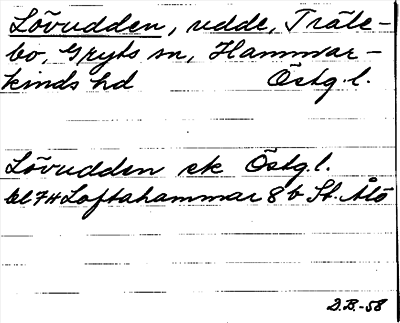 Lövudden, udde, Träle-
bo, Gryts sn, Hammar-
kinds hd Östg.l.
Lövudden ek Östg.l.
bl 7H Loftahammar 8 b St. Ålö
D.B.-58